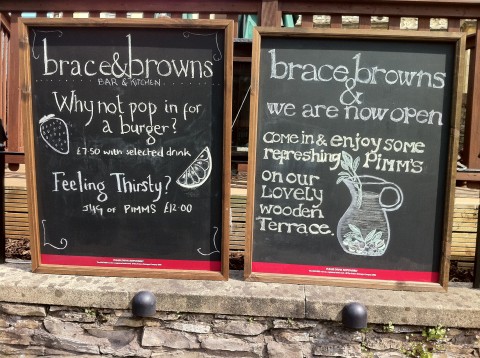 brace&browns
BAR & KITCHEN
Why not pop in for
a burger?
£7.50 with selected drink
Feeling Thirsty?
Jug of PIMMS £12.00
brace browns
&
we are now open
come in & enjoy some
refreshing PIMM'S
on our
Lovely
wooden
Terrace.